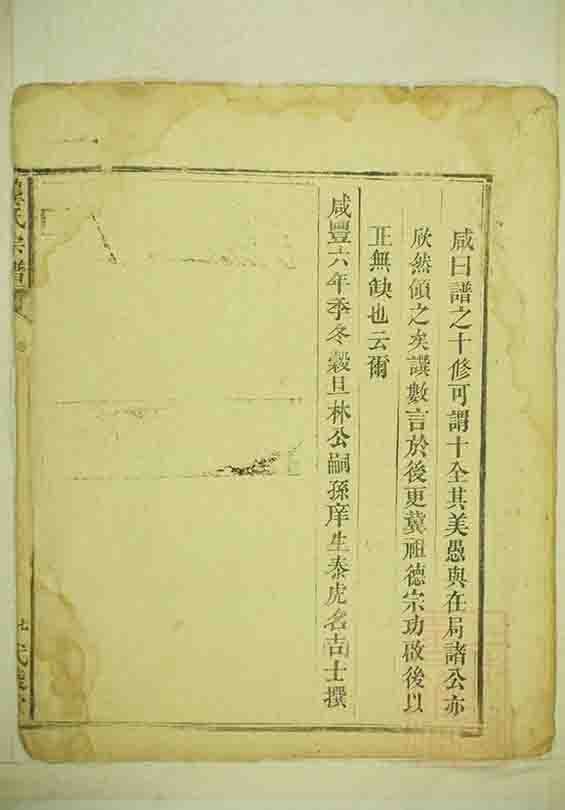 咸曰譜之十修可謂十全其美愚與在局諸公亦
欣然傾之矣譔數言於後更冀祖德宗功啟後以
正無缺也云爾
咸豐六年季冬穀旦林公嗣孫庠生泰虎名吉士撰
氏宗譜